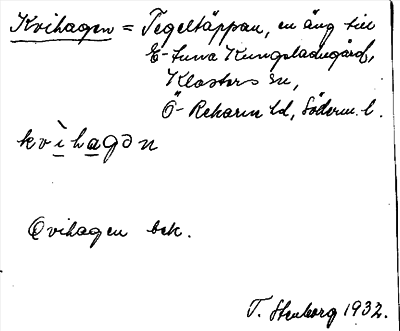 Kvihagen = Tegeltäppan, en äng till
E-tuna Kungsladugård,
Klosters sn,
Ö-Rekarne hd, Söderm. l.
kvìhagən
Qvihagen bek.
T. Stenborg 1932.